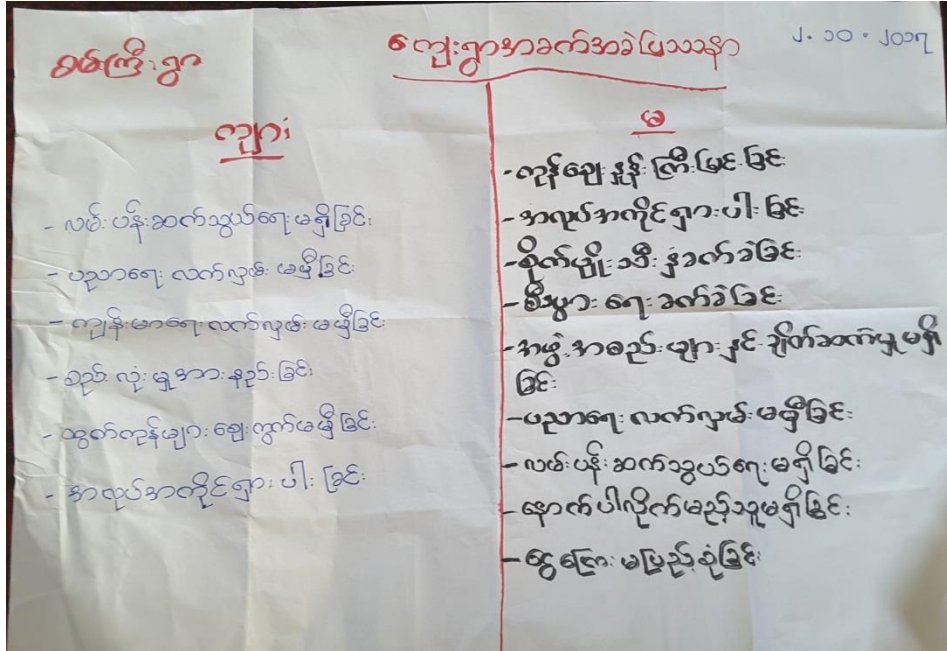 စမ်းကြီးရွာ
ကျေးရွာအခက်အခဲပြဿနာ
၂.၁၀.၂၀၁၇
ကျား
- လမ်းပန်းဆက်သွယ်ရေးမရှိခြင်း
- ပညာရေး လက်လှမ်းမမှီခြင်း
- ကျန်းမာရေးလက်လှမ်းမမှီခြင်း
- စည်းလုံးမှုအားနည်းခြင်း
- ထွက်ကုန်များဈေးကွက်မမှီခြင်း
- အလုပ်အကိုင်ရှားပါးခြင်း
မ
- ကုန်ဈေးနှုန်းကြီးမြင့်ခြင်း
- အလုပ်အကိုင်ရှားပါးခြင်း
- စိုက်ပျိုးသီးနှံခက်ခဲခြင်း
- စီးပွားရေးခက်ခဲခြင်း
- အဖွဲ့အစည်းများနှင့်ချိတ်ဆက်မှုမရှိ
ခြင်း
- ပညာရေးလက်လှမ်းမမှီခြင်း
- လမ်းပန်းဆက်သွယ်ရေးမရှိခြင်း
- နောက်ပါလိုက်မည့်သူမရှိခြင်း
- ငွေကြေးမပြည့်စုံခြင်း